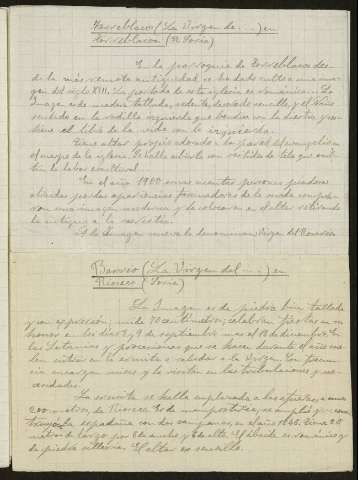 Torreblacos (La Virgen de ...) en
Torreblacos (Pª Soria)
En la parroquia de Torreblacos des-
de la más remota antigüedad se ha dado culto a una ima-
gen del siglo XIII. La portada de esta iglesia es románica. La
Imagen es de madera tallada, sedente, dorado sencillo, y el Niño
sentado en la rodilla izquierda que bendice con la diestra y sos-
tiene el libro de la vida con la izquierda.
Tiene altar propio adosado a la pared del evangelio en
el cuerpo de la iglesia. Se halla cubierta con vestidos de tela que ocul-
tan la labor escultural.
En el año 1900 unas cuantas personas piadosas
aliadas por las apariencias de la moda compra-
ron una imagen moderna y la colocaron en el altar retirando
la antigua a la sacristía.
A la Imagen nueva la denominan Virgen del Rosario
Barrio (La Virgen del ...) en
Rioseco (Soria)
La Imagen es de piedra bien tallada
y con expresión; mide 70 centímetros, celebran fiestas en su
honor en los días 8 y 9 de septiembre mas el 18 de diciembre. En
las Letanías y procesiones que se hacen durante el año sue-
len entrar en la ermita a saludar a la Virgen. Con frecuen-
cia encargan misas y la visitan en las tribulaciones y ne-
cesidades.
La ermita se halla emplazada a las afueras, a unos
200 metros, de Rioseco. Es de mampostería, es amplia y
espadaña con dos campanas, en el año 1848. Tiene 20
metros de largo por 8 de ancho y 6 de alto. El ábside es románico y
de piedra sillería. El altar es sencillo.